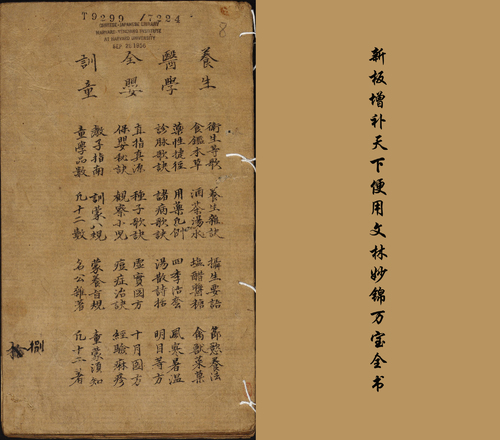 T9299 / 7224
CHINESE-JAPANESE LIBRARY
HARVARD-YENCHING INSTITUTE
AT HARVARD UNIVERSITY
SEP 25 1956
8
養生
醫學
全嬰
訓童
衛生等歌 養生雜訣 攝生要語 節慾養法
食鑑本草 酒茶湯水 塩醋醬糖 禽獸菜菓
藥性捷徑 用藥凡例 四季活套 風寒暑温
診脉歌訣 諸病歌訣 湯散詩括 明目等方
直指真源 種子歌訣 虛實因方 十月圖方
保嬰秘訣 觀察小児 痘症治訣 經驗麻疹
教子指南 訓蒙八規 蒙養旨規 童蒙須知
童學品數 凡十二散 名公雜著 凡十二著
捌
新板增补天下便用文林妙锦万宝全书